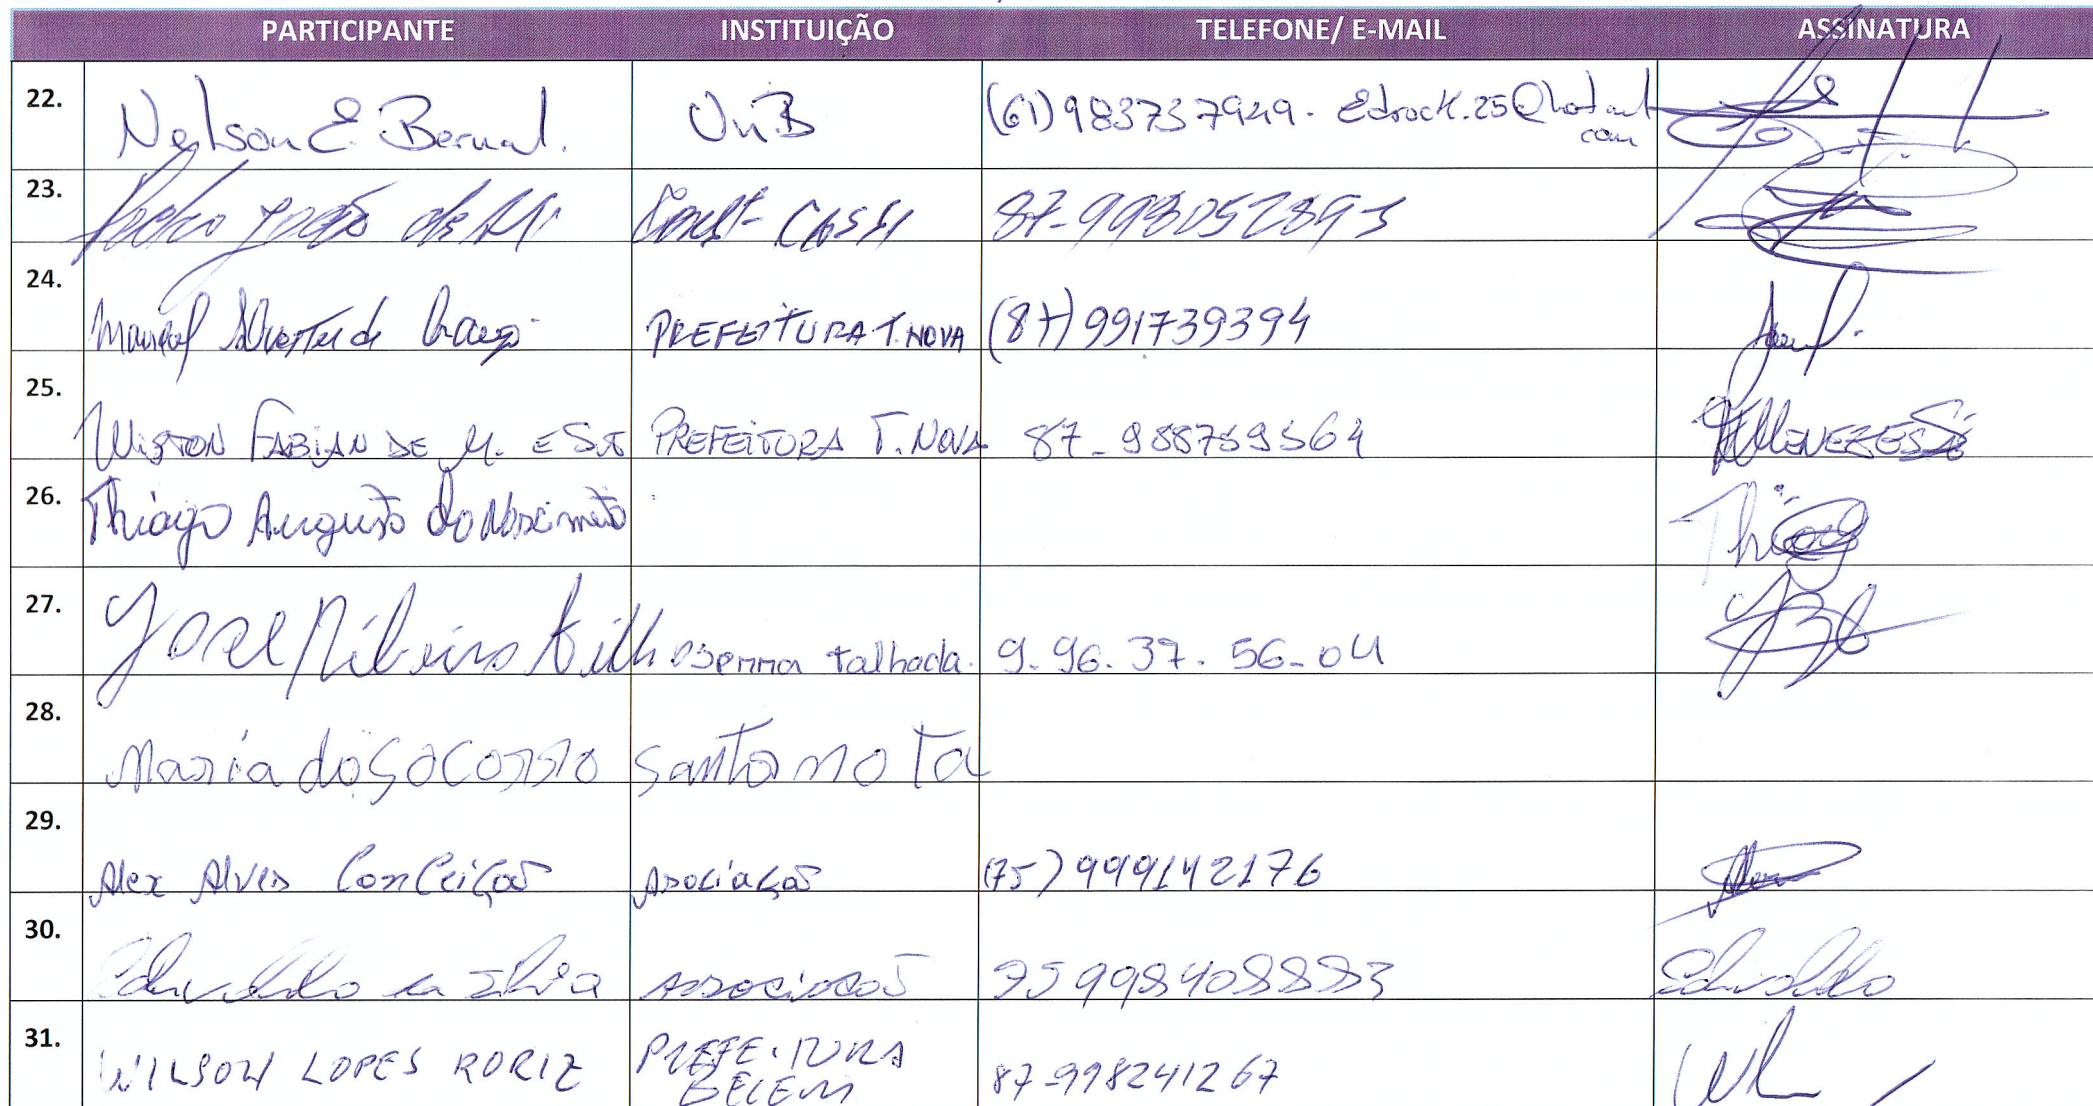 PARTICIPANTE INSTITUIÇÃO TELEFONE/ E-MAIL ASSINATURA
22. Nelson E. Bernal. UnB (61) 983737949. Edrock.25@hotmail
com
23. Pedro João de 87-998052893
24. Manoel de PREFEITURA T. NOVA (87) 991739394
25. WISTON FABIAN DE M. E SÁ PREFEITURA T. NOVA 87-988759564 MENEZES Sá
26. Thiago Augusto do Nascimento Thiago
27. José Ribeiro Filho serra talhada. 9.96.37.56-04
28. Maria do Socorro Santa mota
29. Alex Alves Conceição Asociação (75) 999142176
30. Edivaldo da Silva associacão 75 998408883 Edivaldo
31. WILSON LOPES RORIZ PREFEITURA 87-998241267
BELEM